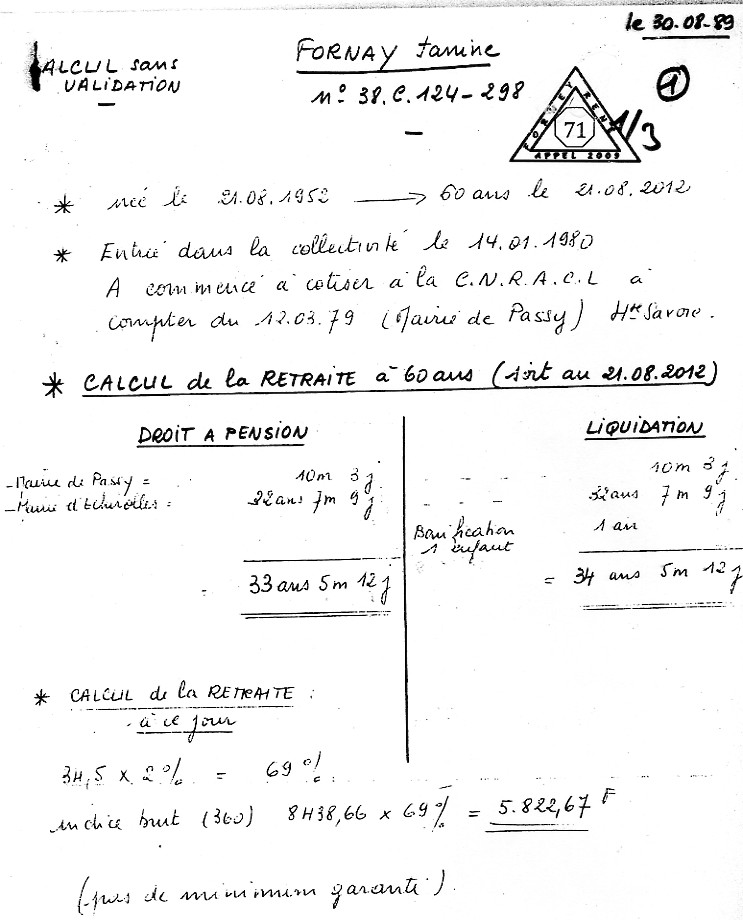 le 30.08.89
CALCUL sans
VALIDATION
FORNAY Janine
n° 38.C.124-298
1
1/3
FORNEY RENE
71
APPEL 2009
* née le 21.08.1952 → 60 ans le 21.08.2012
* Entrée dans la collectivité le 14.01.1980
A commencé à cotiser à la C.N.R.A.C.L à
compter du 12.03.79 (Mairie de Passy) Hte Savoie.
* CALCUL de la RETRAITE à 60 ans (soit au 21.08.2012)
DROIT A PENSION
- Mairie de Passy = 10m 3j
- Mairie d'Echirolles = 32 ans 7m 9j
= 33 ans 5m 12j
LIQUIDATION
- - - 10m 3j
- - - 32 ans 7m 9j
Bonification 1 an
1 enfant
= 34 ans 5m 12j
* CALCUL de la RETRAITE :
à ce jour
34,5 x 2% = 69%
indice brut (360) 8438,66 x 69% = 5.822,67 F
(pas de minimum garanti).